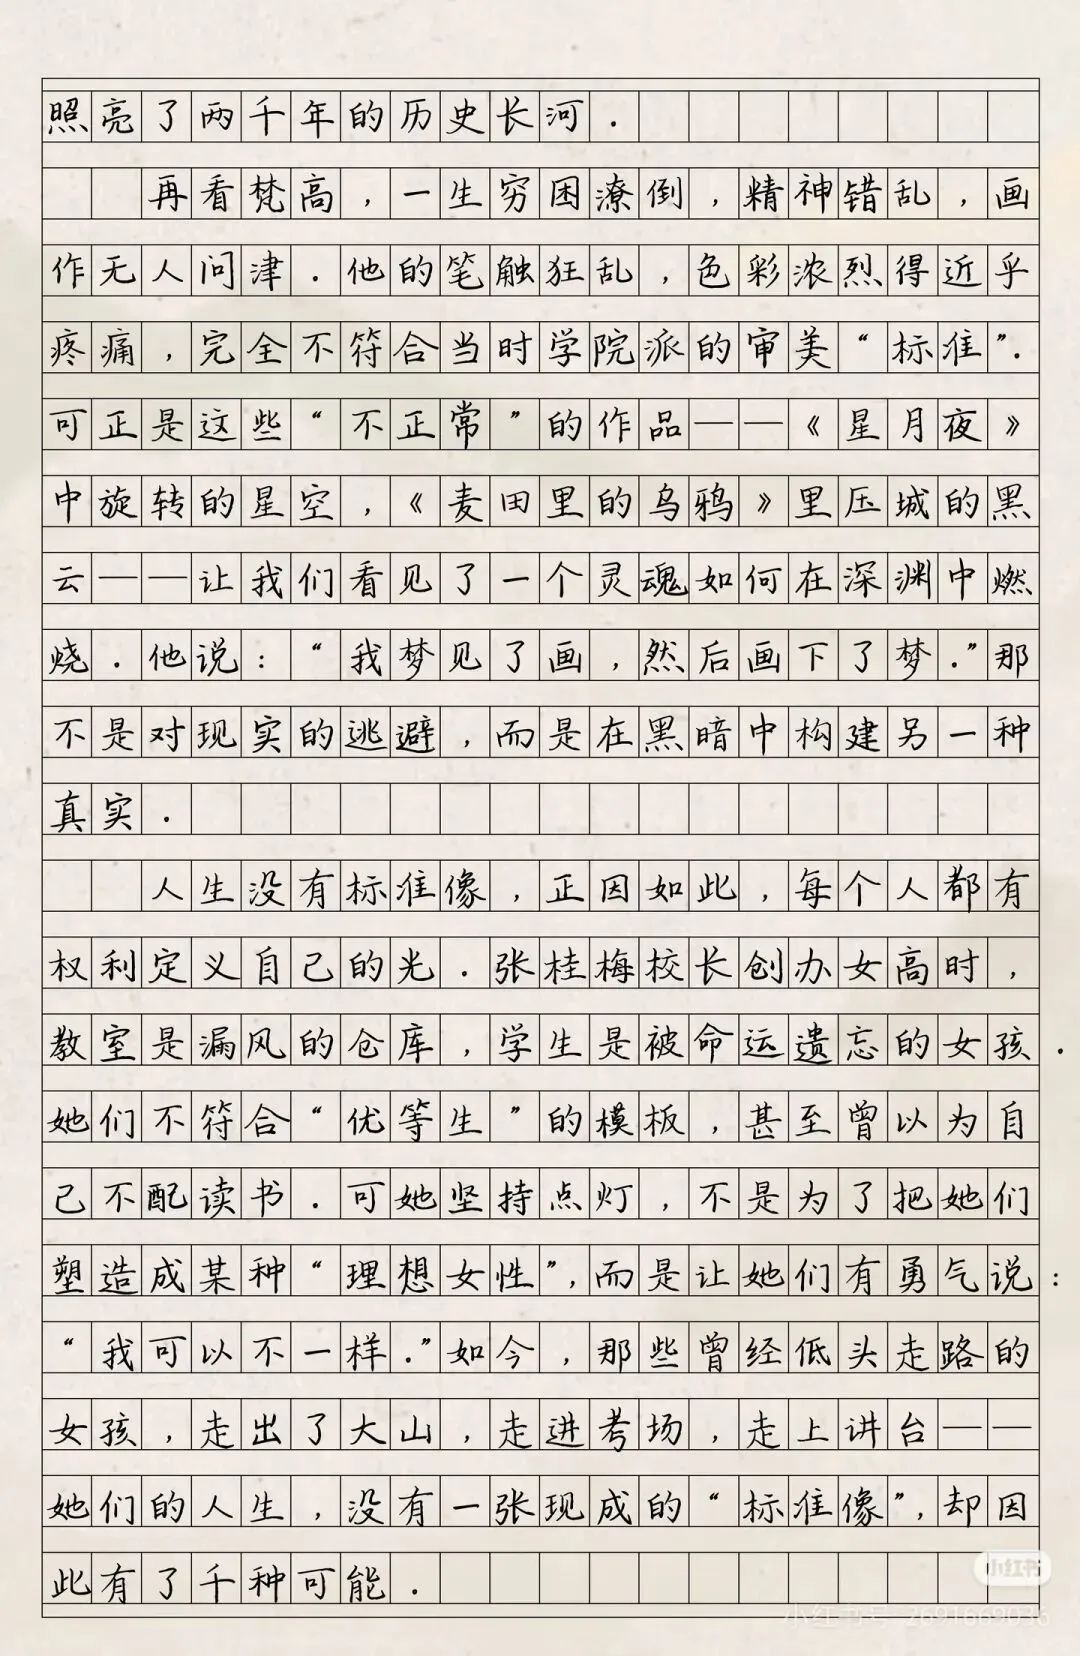 照亮了两千年的历史长河.
再看梵高,一生穷困潦倒,精神错乱,画
作无人问津.他的笔触狂乱,色彩浓烈得近乎
疼痛,完全不符合当时学院派的审美“标准”.
可正是这些“不正常”的作品——《星月夜》
中旋转的星空,《麦田里的乌鸦》里压城的黑
云——让我们看见了一个灵魂如何在深渊中燃
烧.他说:“我梦见了画,然后画下了梦.”那
不是对现实的逃避,而是在黑暗中构建另一种
真实.
人生没有标准像,正因如此,每个人都有
权利定义自己的光.张桂梅校长创办女高时,
教室是漏风的仓库,学生是被命运遗忘的女孩.
她们不符合“优等生”的模板,甚至曾以为自
己不配读书.可她坚持点灯,不是为了把她们
塑造成某种“理想女性”,而是让她们有勇气说:
“我可以不一样.”如今,那些曾经低头走路的
女孩,走出了大山,走进考场,走上讲台——
她们的人生,没有一张现成的“标准像”,却因
此有了千种可能.
小红书
小红书号 2691669036